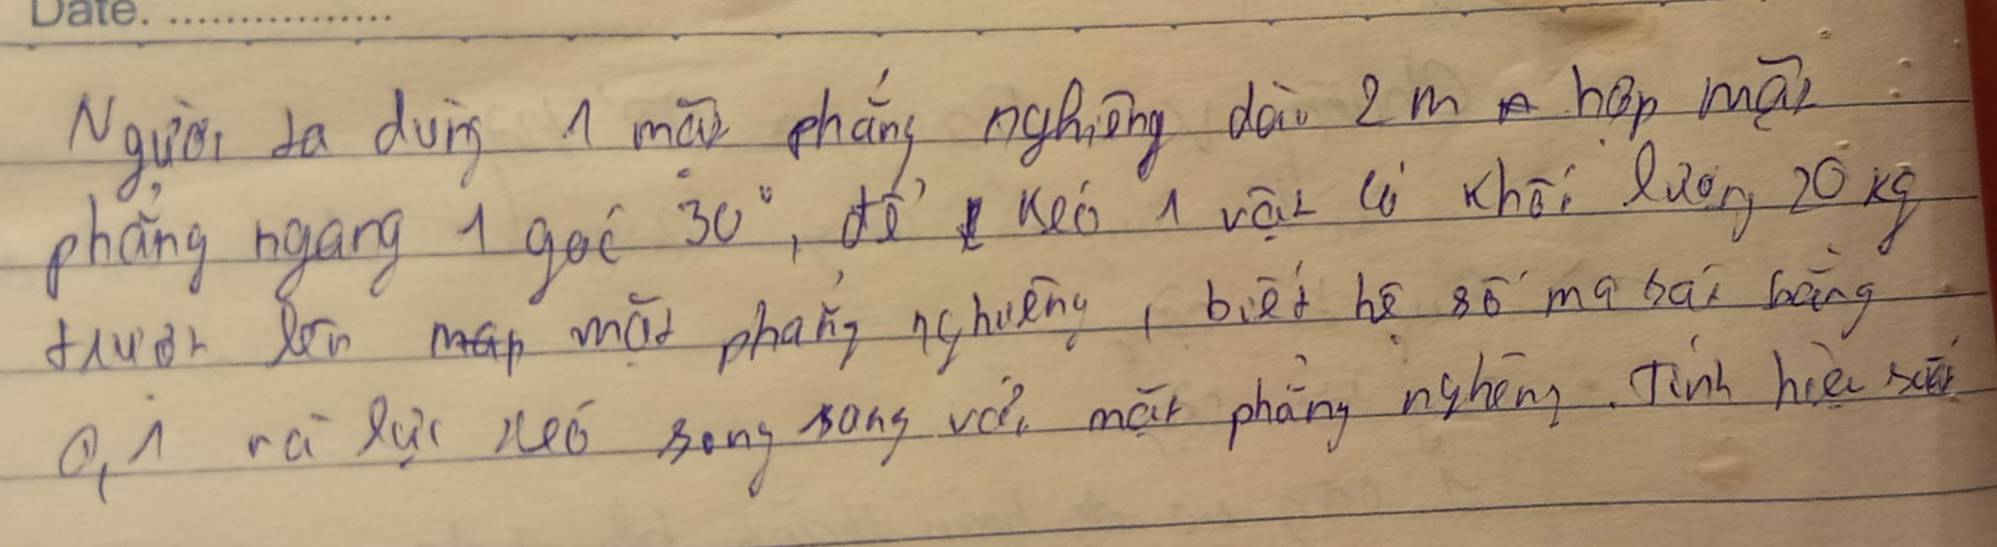 Date. ..................
Người ta dùng 1 mặt phẳng nghiêng dài 2 m hợp mặt
phẳng ngang 1 góc 30°, để kéo 1 vật có khối lượng 20 kg
trượt lên mặt phẳng nghiêng, biết hệ số ma sát bằng
0,1 và lực kéo song song với mặt phẳng nghiêng. Tính hiệu suất